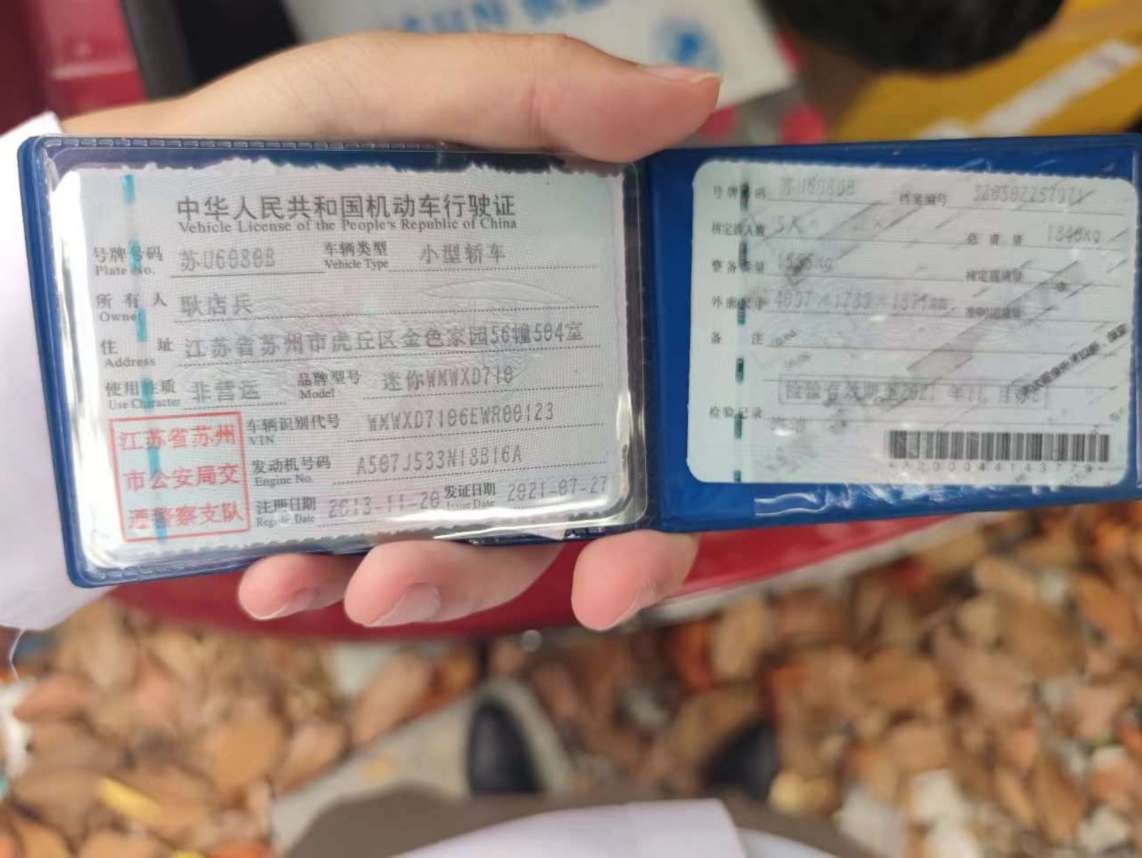 中华人民共和国机动车行驶证
Vehicle License of the People's Republic of China
号牌号码 苏U6080B 车辆类型 小型轿车
Plate No. Vehicle Type
所有人 耿店兵
Owner
住址 江苏省苏州市虎丘区金色家园56幢504室
Address
使用性质 非营运 品牌型号 迷你WMWXD710
Use Character Model
车辆识别代号 WMWXD7106EWR00123
VIN
发动机号码 A507J533N18B16A
Engine No.
注册日期 2013-11-20 发证日期 2021-07-27
Register Date Issue Date
江苏省苏州
市公安局交
通警察支队
号牌号码 苏U6080B 档案编号
核定载人数 5人 总质量 1840kg
整备质量 核定载质量
外廓尺寸
备注
检验有效期至2021年11月
检验记录